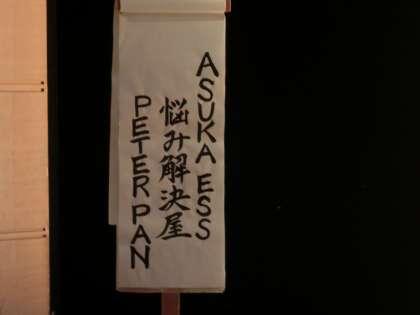 ASUKA ESS
悩み解決屋
PETER PAN